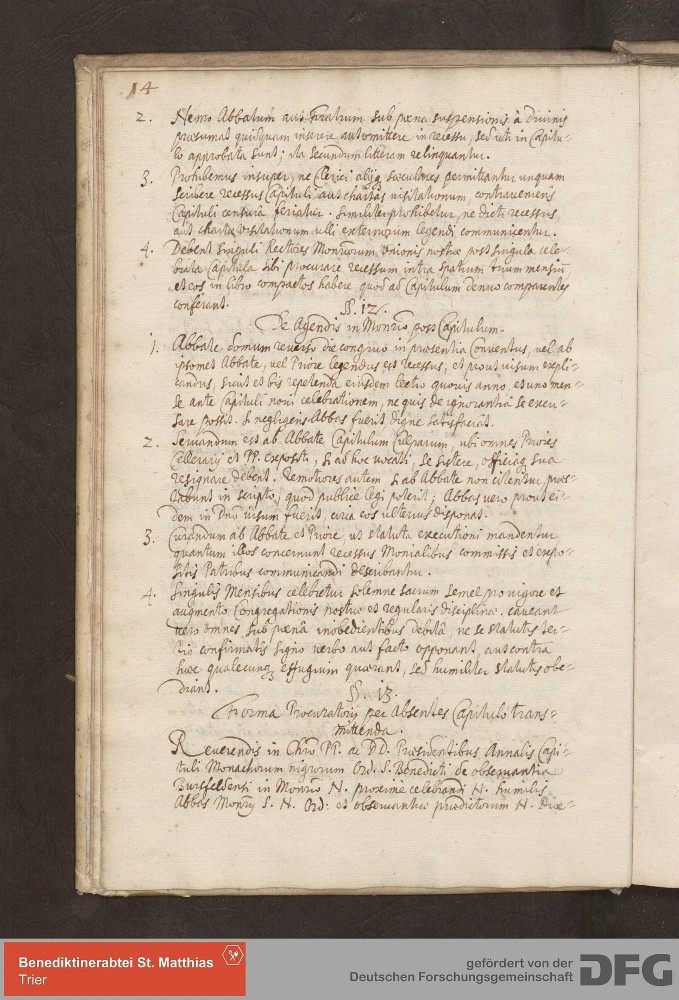 14
2. Nemo Abbatum aut Fratrum sub pœna suspensionis à Divinis
præsumat quidquam inserere aut omittere in recessu, sed uti in Capitu-
lo approbata sunt; ita secundum litteram relinquantur.
3. Prohibemus insuper, ne Clerici aliiq. sæculares permittantur unquam
scribere recessus Capituli aut chartas visitationum, contraveniens
Capituli censurâ feriatur. similiter prohibetur, ne dicti recessus,
aut chartæ visitationum ulli externorum legendi communicentur.
4. Debent singuli Rectores Monriorum Unionis nostræ post singula cele-
brata Capitula sibi procurare recessum intra spatium trium mensiũ
et eos in libro compactos habere, quod ad Capitulum denuo comparentes
conferant.
§§. 12.
De Agendis in Monrio post Capitulum.
1. Abbate domum reverso die congruo in præsentia Conventus, vel ab
ipsomet Abbate, vel Priore legendus est recessus, et prout visum expli-
candus, sicut et bis repetenda eiusdem lectio quovis anno, et uno men-
se ante Capituli novi celebrationem, ne quis de ignorantiâ se excu-
sare possit. si negligens Abbas fuerit digne satisfaciat.
2. Servandum est ab Abbate Capitulum Culparum, ubi omnes Priores
Cellerarij et PP. expositi, si ad hoc vocati, se sistere, officiaq. sua
resignare debent. Remotiores autem si ab Abbate non citentur, præs-
tabunt in scripto, quod publice legi poterit; Abbas vero prout ei-
dem in Dno visum fuerit, circa eos ulterius disponat.
3. Curandum ab Abbate et Priore, ut statuta executioni mandentur,
quantum illos concernunt recessus Monialibus commissis et expo-
sitis Patribus communicandi describantur.
4. Singulis Mensibus celebretur solemne sacrum semel pro vigore et
augmento Congregationis nostræ et regularis disciplinæ. caveant
vero omnes sub pœnâ inobedientibus debitâ, ne se statutis ter-
tio confirmatis signo verbo aut facto opponant, aut contra
hæc qualecunq. effugium quærant, sed humiliter statutis obe-
diant.
§§. 13.
Forma Procuratorij per Absentes Capitulo trans-
mittenda.
Reverendis in Chro PP. ac DD. Præsidentibus Annalis Capi-
tuli Monachorum nigrorum Ord. S. Benedicti de observantia
Bursfeldensi in Monrio N. proximè celebrandi N. humilis
Abbas Monrij S. N. Ord: et observantiæ prædictorum N. Diæ-
Benediktinerabtei St. Matthias
Trier
gefördert von der
Deutschen Forschungsgemeinschaft
DFG